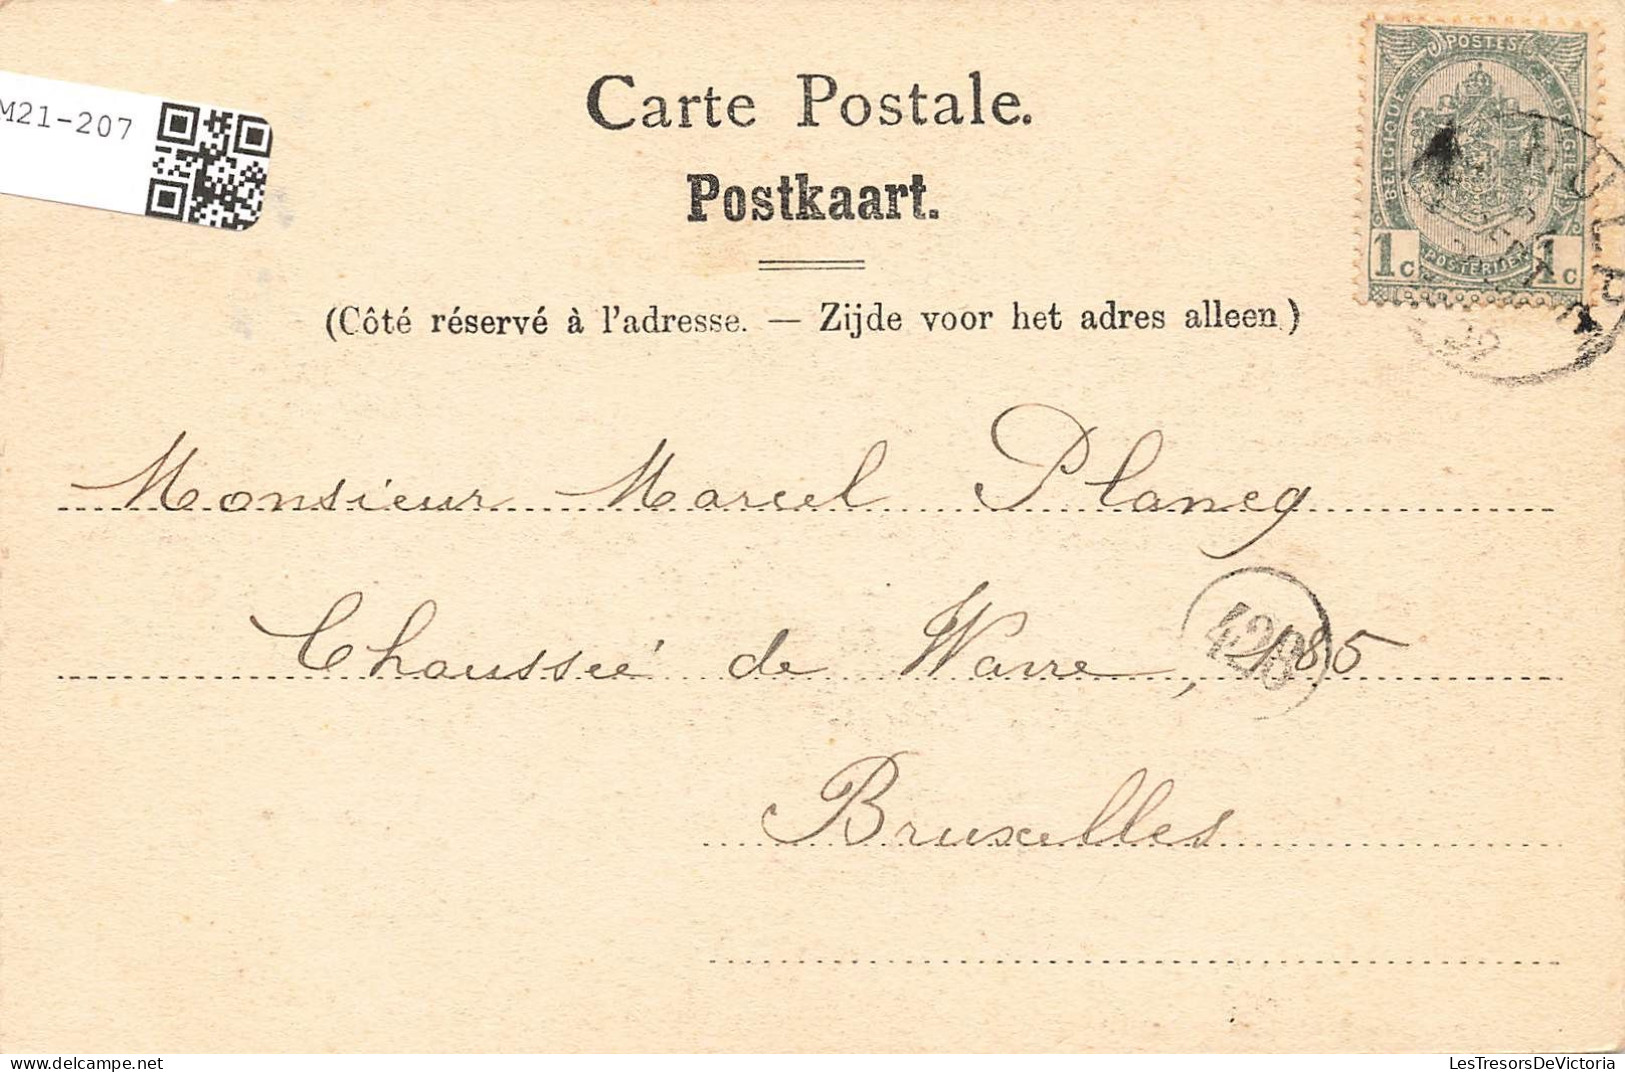 M21-207
Carte Postale.
Postkaart.
(Côté réservé à l'adresse. — Zijde voor het adres alleen)
POSTES
BELGIQUE
BELGIË
POSTERIJEN
1c 1c
Monsieur Marcel Plancq
Chausseé de Wavre, 185
428
Bruxelles
http://www.delcampe.net
LesTresorsDeVictoria